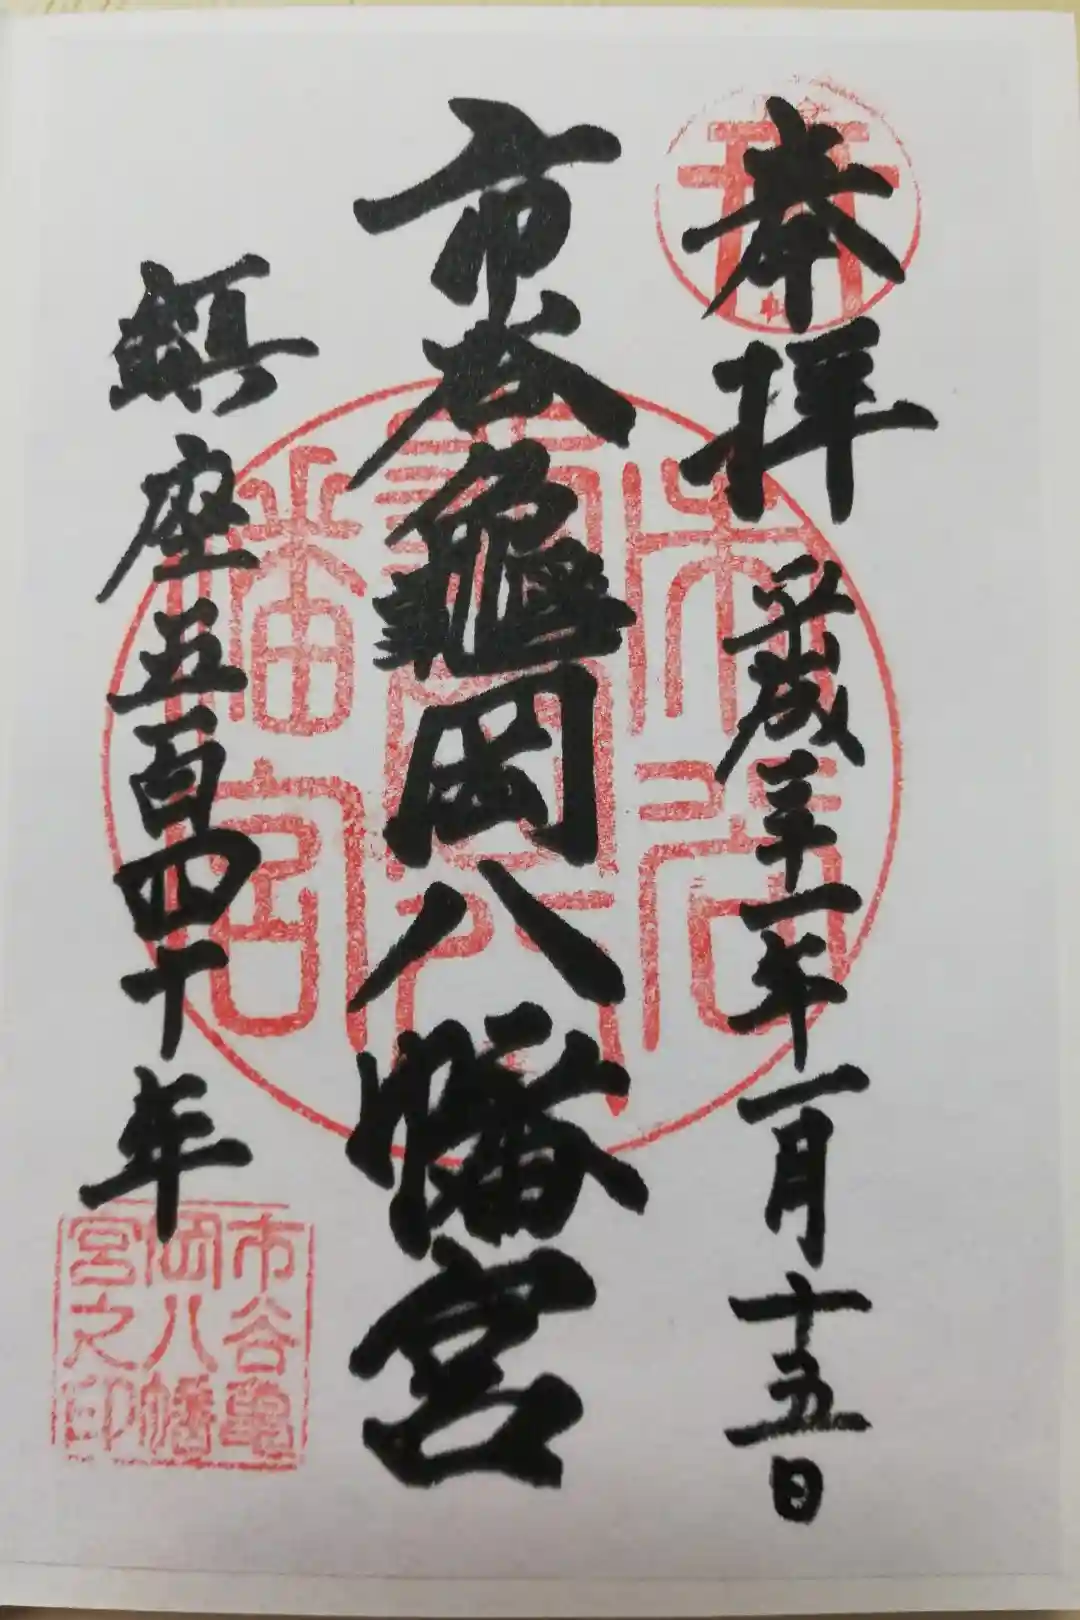 奉拝
平成三十一年一月十五日
市谷亀岡八幡宮
鎮座五百四十年
市谷亀
岡八幡
宮之印